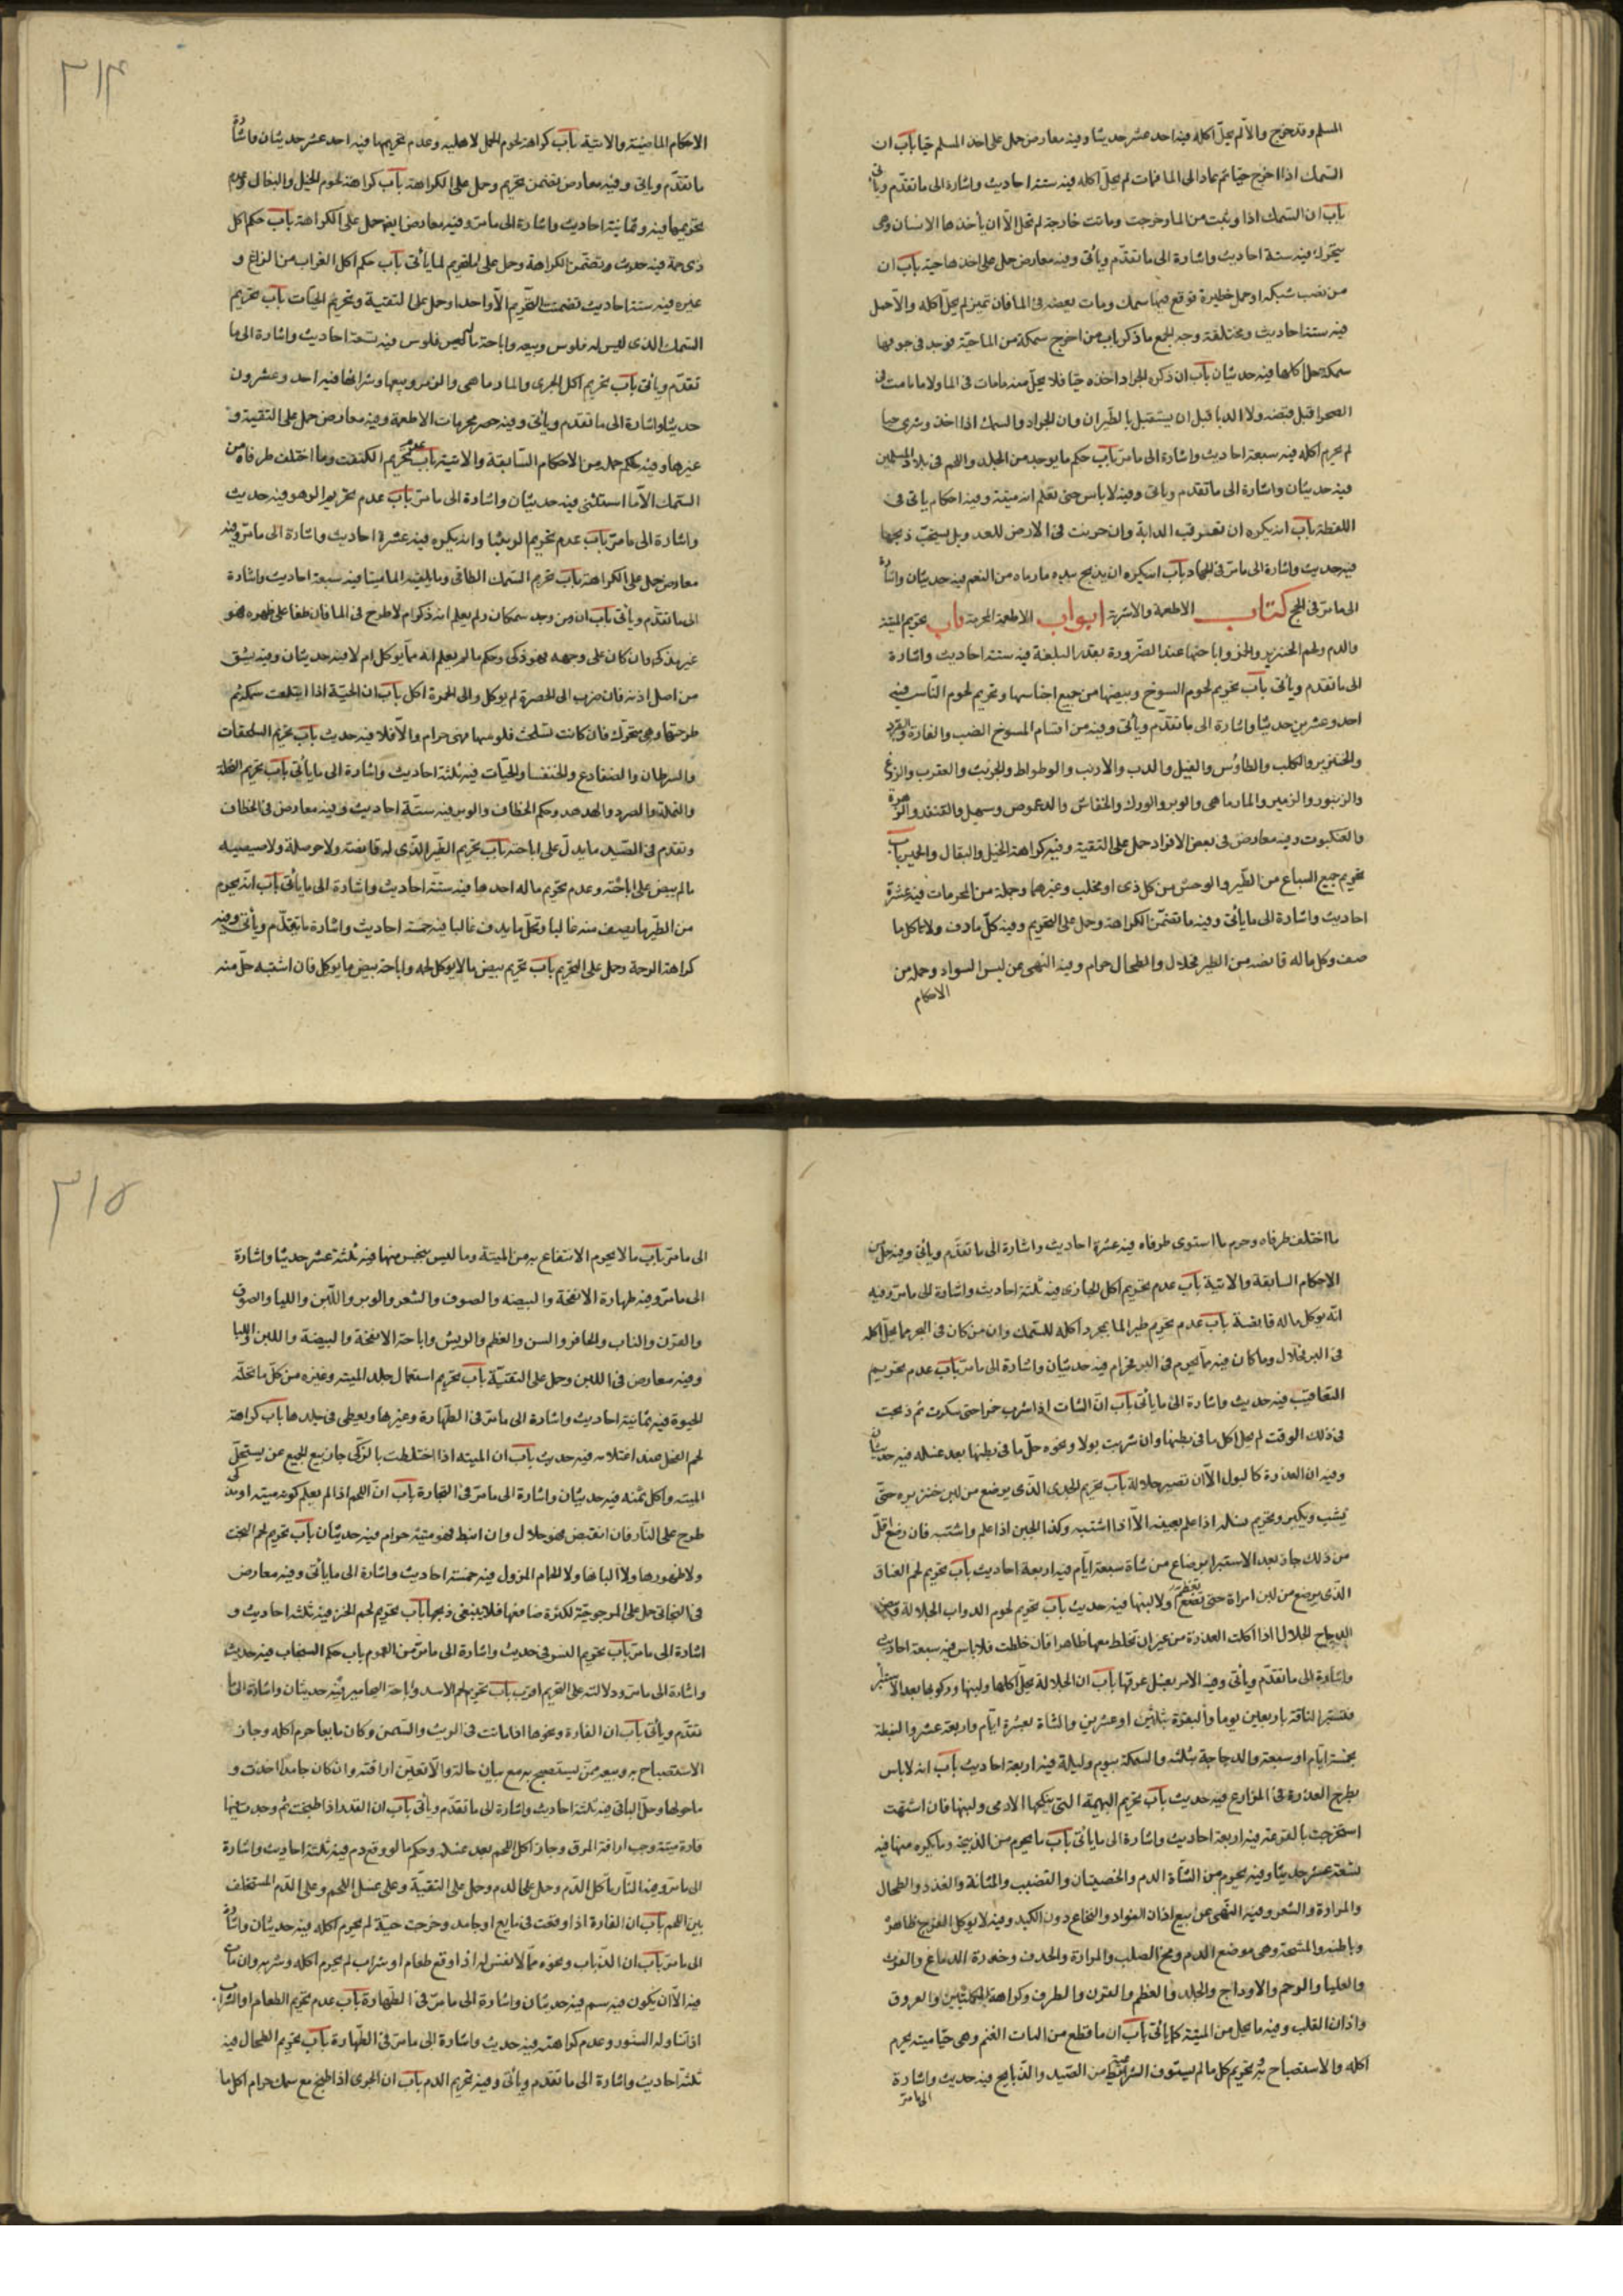 المسلم وقد خرج والا لم يحلّ اكله فيه احد عشر حديثا وفيه معارض حمل على اخذ المسلم حيّا باب ان
السّمك اذا اخرج حيّا ثم عاد الى الماء فمات لم يحلّ اكله فيه ستة احاديث واشارة الى ما تقدّم ويأتى
باب ان السّمك اذا وثبت من الماء وخرجت وماتت خارجه لم تحلّ الّا ان يأخذها الانسان وهى
يتحرّك فيه ستة احاديث واشارة الى ما تقدّم ويأتى وفيه معارض حمل على اخذها حيّة باب ان
من نصب شبكة او عمل حظيرة فوقع فيها سمك ومات بعضه فى الماء فان تميز لم يحلّ اكله والّا حلّ
فيه ستة احاديث ومختلفة وجه الجمع ما ذكر باب من اخرج سمكة من الماء حيّة فوجد فى جوفها
سمكة حلّ اكلها فيه حديثان باب ان ذكوة الجراد اخذه حيّا فلا يحلّ منه ما مات فى الماء ولا ما مات فى
الصحراء قبل قبضه ولا الدبا قبل ان يستقلّ بالطّيران وان الجراد والسمك اذا اخذ وشوى حيا
لم يحرم اكله فيه سبعة احاديث واشارة الى ما مرّ باب حكم ما يوجد من الجلد واللحم فى بلاد المسلمين
فيه حديثان واشارة الى ما تقدم وياتى وفيه لا باس حتى تعلم انه ميتة وفيه احكام ياتى فى
اللقطة باب انه يكره ان تعرقب الدابة وان حرنت فى الارض للعدو بل يستحبّ ذبحها
فيه حديث واشارة الى ما مرّ فى الجهاد باب انه يكره ان يذبح بيده ما رباه من النعم فيه حديثان واشارة
الى ما مرّ فى الحج كتاب الاطعمة والاشربة ابواب الاطعمة المحرمة باب تحريم الميتة
والدم ولحم الخنزير والخمر واباحتها عند الضّرورة بقدر البلغة فيه ستة احاديث واشارة
الى ما تقدم ويأتى باب تحريم لحوم المسوخ وبيضها من جميع اجناسها وتحريم لحوم النّاس فيه
احد وعشرين حديثا واشارة الى ما تقدّم ويأتى وفيه من اقسام المسوخ الضب والفارة والقرد
والخنزير والكلب والطاوس والفيل والدب والارنب والوطواط والجريث والعقرب والوزغ
والزنبور والزمير والمارماهى والوبر والورك والخفاش والدعموص وسهيل والقنفذ والزهرة
والعنكبوت وفيه معارض فى بعض الافراد حمل على التقية وفيه كراهة الخيل والبغال والحمير باب
تحريم جميع السباع من الطّير والوحش من كل ذى او مخلب وغيرهما وجملة من المحرمات فيه عشرة
احاديث واشارة الى ما يأتى وفيه ما تضمّن الكراهة وحمل على التحريم وفيه كلّ ما دف ولا تاكل ما
صف وكل ما له قانصه من الطير فحلال والطحال حرام وفيه النهى عن لبس السواد وجملة من
الاحكام
٣١۴
الاحكام الماضية والاتية باب كراهة لحوم الحمر الاهليه وعدم تحريمها فيه احد عشر حديثان واشارة
ما تقدّم وياتى وفيه معارض يتضمن تحريم وحمل على الكراهة باب كراهة لحوم الخيل والبغال وعدم
تحريمها فيه وثمانية احاديث واشارة الى ما مرّ وفيه معارض ايضا حمل على الكراهة باب حكم اكل
ذى حمة فيه حديث وتضمّن الكراهة وحمل على التحريم لما يأتى باب حكم اكل الغراب من الزاغ و
غيره فيه ستة احاديث تضمنت التحريم الّا واحدا وحمل على التقية وتحريم الحيّات باب تحريم
السّمك الذى ليس له فلوس وبيعه واباحة ما له فلوس فيه تسعة احاديث واشارة الى ما
تقدّم ويأتى باب تحريم اكل الجرى والمارماهى والزمير وبيعها وشرائها فيه احد وعشرون
حديثا واشارة الى ما تقدّم ويأتى وفيه حصر محرمات الاطعمة وفيه معارض حمل على التقية و
غيرها وفيه حكم جملة من الاحكام السّابقة والاتية باب عدم تحريم الكنعت وما اختلف طرفاه من
السّمك الّا ما استثنى فيه حديثان واشارة الى ما مرّ باب عدم تحريم الربيثا وهو فيه حديث
واشارة الى ما مرّ باب عدم تحريم الربيثا وانه يكره فيه عشرة احاديث واشارة الى ما مرّ وفيه
معارض حمل على الكراهة باب تحريم السّمك الطافى وما يلقيه الماء ميتا فيه سبعة احاديث واشارة
الى ما تقدّم ويأتى باب ان من وجد سمكا ولم يعلم انه ذكى ام لا طرح فى الماء فان طفا على ظهره فهو
غير مذكى وان كان على وجهه فهو ذكى وحكم ما لم يعلم انه ممّا يؤكل ام لا فيه حديثان وفيه يشق
من اصل اذنه فان ضرب الى الخضرة لم يوكل والى الحمرة اكل باب ان الحيّة اذا ابتلعت سمكة ثم
طرحتها وهى تتحرّك فان كانت تسلخت فلوسها فهى حرام والّا فلا فيه حديث باب تحريم السلحفات
والسرطان والضفادع والخنفساء والحيّات فيه ثلثة احاديث واشارة الى ما يأتى باب تحريم النحلة
والنملة والصرد والهدهد وحكم الخطاف والوبر فيه ستّة احاديث وفيه معارض فى الخطاف
وتقدّم فى الصّيد ما يدلّ على اباحته باب تحريم الطّير الّذى له قانصة ولا حوصلة ولا صيصية
ما لم ينص على اباحته وعدم تحريم ما له احدها فيه ستّة احاديث واشارة الى ما يأتى باب انّه يحرم
من الطّير ما يصف منه غالبا وتحلّ ما يدف غالبا فيه خمسة احاديث واشارة ما تقدّم ويأتى وفيه
كراهة الرحمة وحمل على التحريم باب تحريم بيض ما لا يوكل لحمه واباحة بيض ما يوكل فان اشتبه حلّ منه
ما اختلف طرفاه وحرم ما استوى طرفاه فيه عشرة احاديث واشارة الى ما تقدّم ويأتى وفيه جملة من
الاحكام السابقة والاتية باب عدم تحريم اكل الحبارى فيه ثلثة احاديث واشارة الى ما مرّ وفيه
انّه يوكل ما له قانصة باب عدم تحريم طير الماء بمجرد اكله للسّمك وان من كان فى البحر مما يحلّ اكله
فى البر فحلال وما كان فيه ما يحرم فى البر فحرام فيه حديثان واشارة الى ما مرّ باب عدم تحريم
فيه حديث واشارة الى ما يأتى باب انّ الشات اذا شرب خمرا حتى سكرت ثم ذبحت
فى ذلك الوقت لم يحلّ اكل ما فى بطنها وان شربت بولا ونحوه حلّ ما فى بطنها بعد غسله فيه حديثان
وفيه ان العذرة كالبول الّا ان تصير جلالة باب تحريم الجدى الّذى يرضع من لبن خنزيره حتّى
يشب ويكبر وتحريم نسله اذا علم بعينه الّا اذا اشتبه وكذا الجبن اذا علم واشتبه فان رضع اقلّ
من ذلك جاز بعد الاستبراء برضاع من شاة سبعة ايّام فيه اربعة احاديث باب تحريم لحم العناق
الّذى يرضع من لبن امراة حتى تفطم ولا لبنها فيه حديث باب تحريم لحوم الدواب الجلالة وبيض
الدجاج الجلال اذا اكلت العذرة من غير ان تخلط معها طاهرا فان خلطت فلا باس فيه سبعة احاديث
واشارة الى ما تقدّم ويأتى وفيه الامر بغسل عرقها باب ان الجلالة يحلّ اكلها ولبنها وركوبها بعد الاستبراء
فتستبرا الناقة باربعين يوما والبقرة بثلثين او عشرين والشاة بعشرة ايّام واربعة عشر والبطة
بخمسة ايّام او سبعة والدجاجة بثلثه والسمكة بيوم وليلة فيه اربعة احاديث باب انه لا باس
بطرح العذرة فى المزارع فيه حديث باب تحريم البهيمة التى ينكحها الادمى ولبنها فان اشتبهت
استخرجت بالقرعة فيه اربعة احاديث واشارة الى ما يأتى باب ما يحرم من الذبيحة وما يكره منها فيه
تسعة عشر حديثا وفيه يحرم من الشّاة الدم والخصيتان والقضيب والمثانة والغدد والطحال
والمرارة والشعر وفيه النّهى عن بيع اذان الفؤاد والنخاع دون الكبد وفيه لا يوكل الفرج ظاهرة
وباطنه والمشيمة وهى موضع الدم ومخ الصلب والمرارة والحدق وخرزة الدماغ والفرث
والعلبا والرحم والاوداج والجلد والعظم والقرن والظرف وكراهة الكليتين والعروق
واذان القلب وفيه ما يحل من الميتة كما يأتى باب ان ما قطع من اليات الغنم وهى حيّا ميتة يحرم
اكله والاستصباح به وتحريم كل ما لم يستوف الشرائط من الصّيد والذبايح فيه حديث واشارة
الى ما مرّ
٣١۵
الى ما مرّ باب ما لا يحرم الانتفاع به من الميتة وما ليس بنجس منها فيه ثلثة عشر حديثا واشارة
الى ما مرّ وفيه طهارة الانفحة والبيضه والصوف والشعر والوبر واللّبن واللبا والصوف
والقرن والناب والحافر والسن والعظم والريش واباحة الانفحة والبيضة واللبن واللبا
وفيه معارض فى اللبن وحمل على التقيّة باب تحريم استعمال جلد الميته وغيره من كلّ ما تحلّه
الحيوة فيه ثمانية احاديث واشارة الى ما مرّ فى الطّهارة وغيرها ويعطى فى جلدها باب كراهة
لحم الفحل عند اغتلامه فيه حديث باب ان الميته اذا اختلطت بالذكّى جاز بيع الجميع ممن يستحلّ
الميته واكل ثمنه فيه حديثان واشارة الى ما مرّ فى التجارة باب انّ اللحم اذا لم يعلم كونه ميته او مذكى
طرح على النّار فان انقبض فهو حلال وان انبسط فهو ميتة حرام فيه حديثان باب تحريم لحم البخت
ولا ظهورها ولا البانها ولا الحمام المسرول فيه خمسة احاديث واشارة الى ما يأتى وفيه معارض
فى البخاتى حمل على المرجوحيّة لكثرة منافعها فلا ينبغى ذبحها باب تحريم لحم الخز فيه ثلثة احاديث و
اشارة الى ما مرّ باب تحريم النسر فى حديث واشارة الى ما مرّ من العموم باب حكم السنجاب فيه حديث
واشارة الى ما مرّ ودلالته على التحريم اقرب باب تحريم لحم الاسد واباحة اليحامير فيه حديثان واشارة الى ما
تقدّم ويأتى باب ان الفارة ونحوها اذا ماتت فى الزيت والسّمن وكان مايعا حرم اكله وجاز
الاستصباح به وبيعه ممّن يستصبح به مع بيان حاله والّا تعيّن اراقته وان كان جامدا اخذت و
ما حولها وحلّ الباقى فيه ثلثة احاديث واشارة الى ما تقدّم ويأتى باب ان القدر اذا طبخت ثم وجدت فيها
فارة ميتة وجب اراقة المرق وجاز اكل اللحم بعد غسله وحكم ما لو وقع دم فيه ثلثة احاديث واشارة
الى ما مرّ وفيه النّار تأكل الدّم وحمل على الدم وحمل على التقيّة وعلى غسل اللحم وعلى الدّم المستخلف
بين اللحم باب ان الفارة اذا وقعت فى مايع او جامد وخرجت حيّة لم يحرم اكله فيه حديثان واشارة
الى ما مرّ باب ان الذّباب ونحوه ممّا لا نفس له اذا وقع طعام او شراب لم يحرم اكله وشربه وان مات
فيه الّا ان يكون فيه سم فيه حديثان واشارة الى ما مرّ فى الطّهارة باب عدم تحريم الطعام والشراب
اذا تناوله السنور وعدم كراهته فيه حديث واشارة الى ما مرّ فى الطّهارة باب تحريم الطحال فيه
ثلثة احاديث واشارة الى ما تقدّم ويأتى وفيه تحريم الدم باب ان الجرى اذا طبخ مع سمك حرام اكل ما